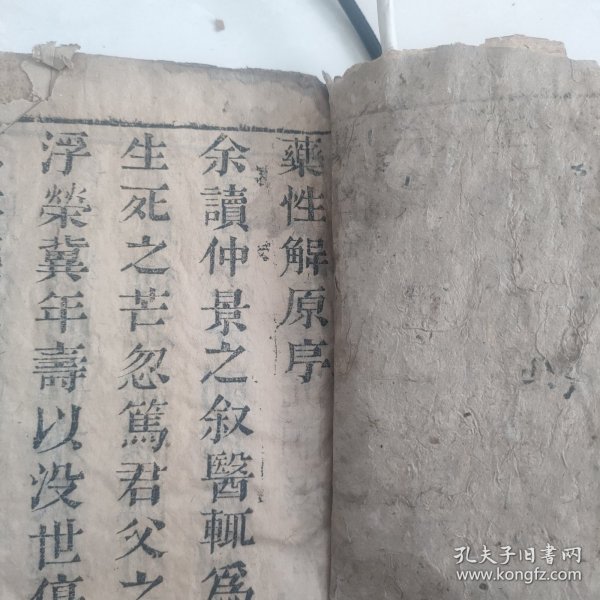 藥性解原序
余讀仲景之叙醫輒爲
生死之芒忽篤君父之
浮榮冀年壽以没世
孔夫子旧书网
www.kongfz.com